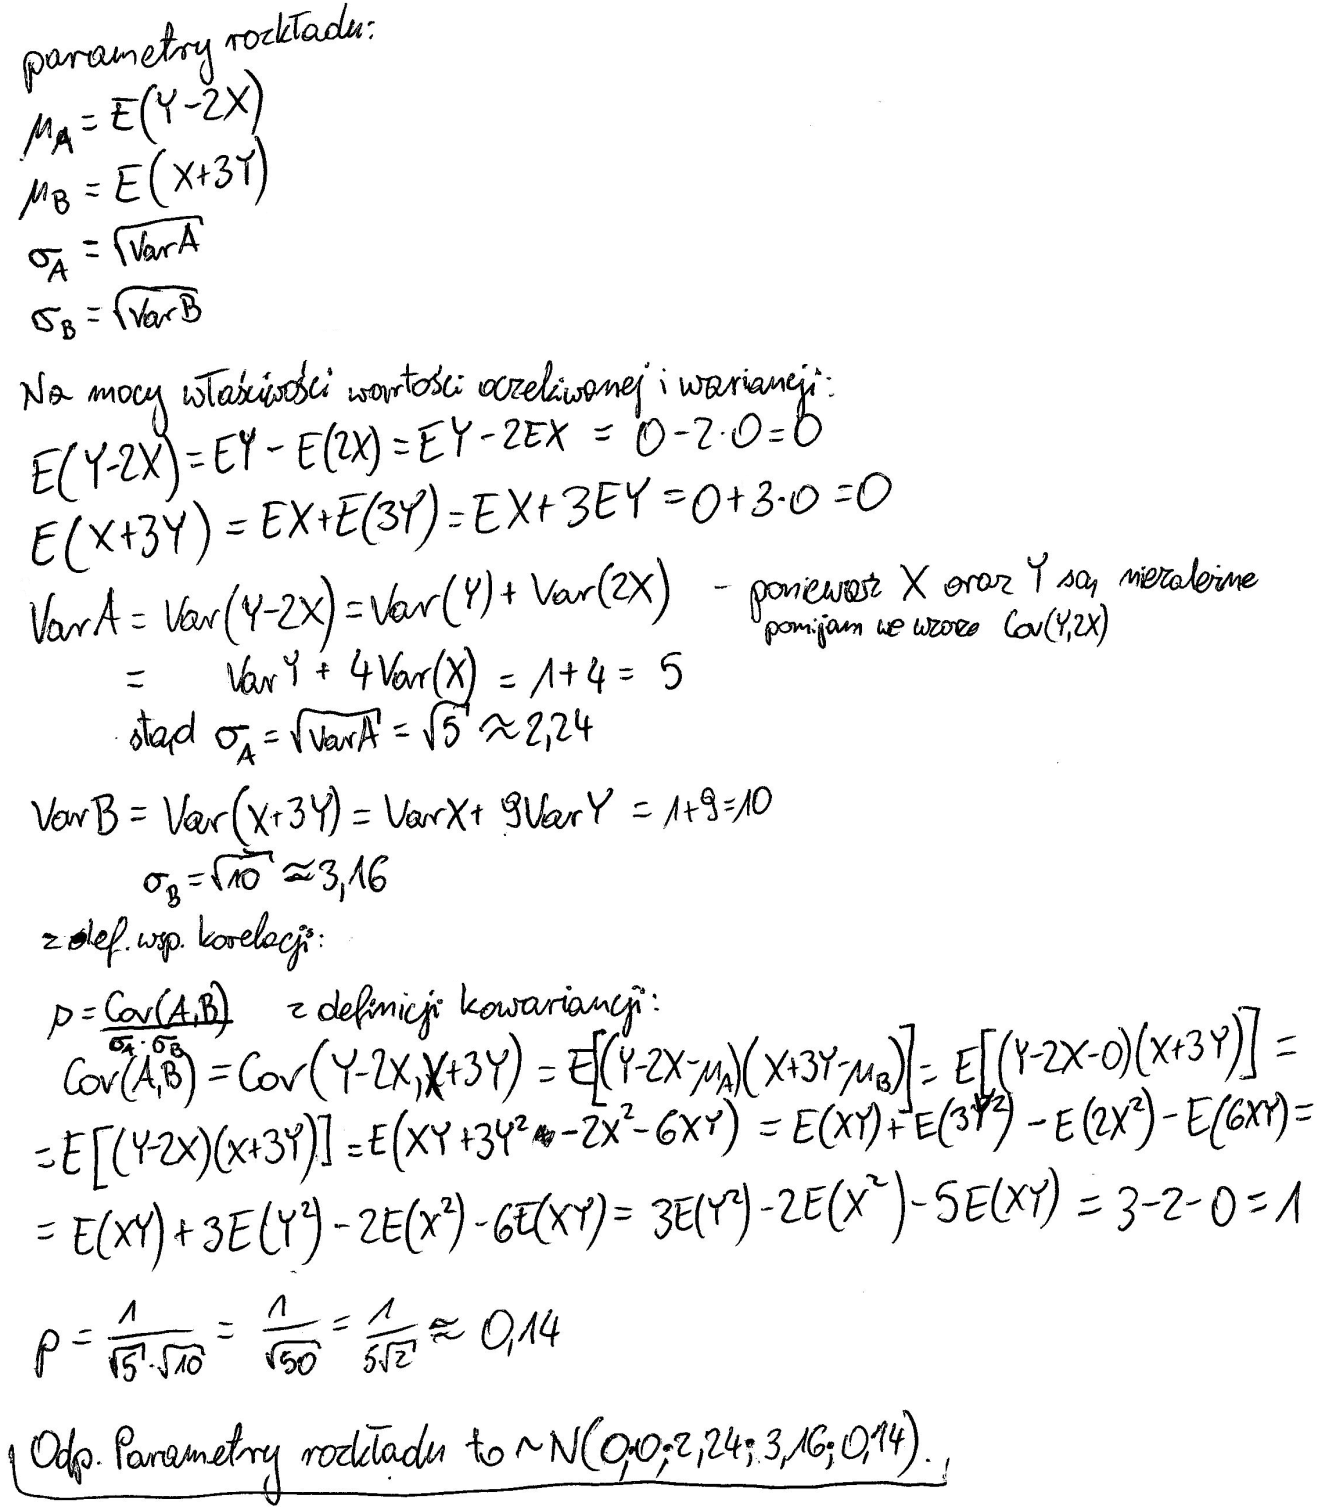 parametry rozkładu:
μ_A = E(Y-2X)
μ_B = E(X+3Y)
σ_A = √VarA
σ_B = √VarB
Na mocy właściwości wartości oczekiwanej i wariancji:
E(Y-2X) = EY - E(2X) = EY - 2EX = 0 - 2·0 = 0
E(X+3Y) = EX + E(3Y) = EX + 3EY = 0 + 3·0 = 0
VarA = Var(Y-2X) = Var(Y) + Var(2X) - ponieważ X oraz Y są niezależne
pomijam we wzorze Cov(Y,2X)
= VarY + 4Var(X) = 1+4 = 5
stąd σ_A = √VarA = √5 ≈ 2,24
VarB = Var(X+3Y) = VarX + 9VarY = 1+9 = 10
σ_B = √10 ≈ 3,16
z def. wsp. korelacji:
ρ = Cov(A,B) / σ_A·σ_B z definicji kowariancji:
Cov(A,B) = Cov(Y-2X, X+3Y) = E[(Y-2X-μ_A)(X+3Y-μ_B)] = E[(Y-2X-0)(X+3Y)] =
= E[(Y-2X)(X+3Y)] = E(XY + 3Y² - 2X² - 6XY) = E(XY) + E(3Y²) - E(2X²) - E(6XY) =
= E(XY) + 3E(Y²) - 2E(X²) - 6E(XY) = 3E(Y²) - 2E(X²) - 5E(XY) = 3-2-0 = 1
ρ = 1/(√5·√10) = 1/√50 = 1/(5√2) ≈ 0,14
Odp. Parametry rozkładu to ~N(0;0;2,24;3,16;0,14).